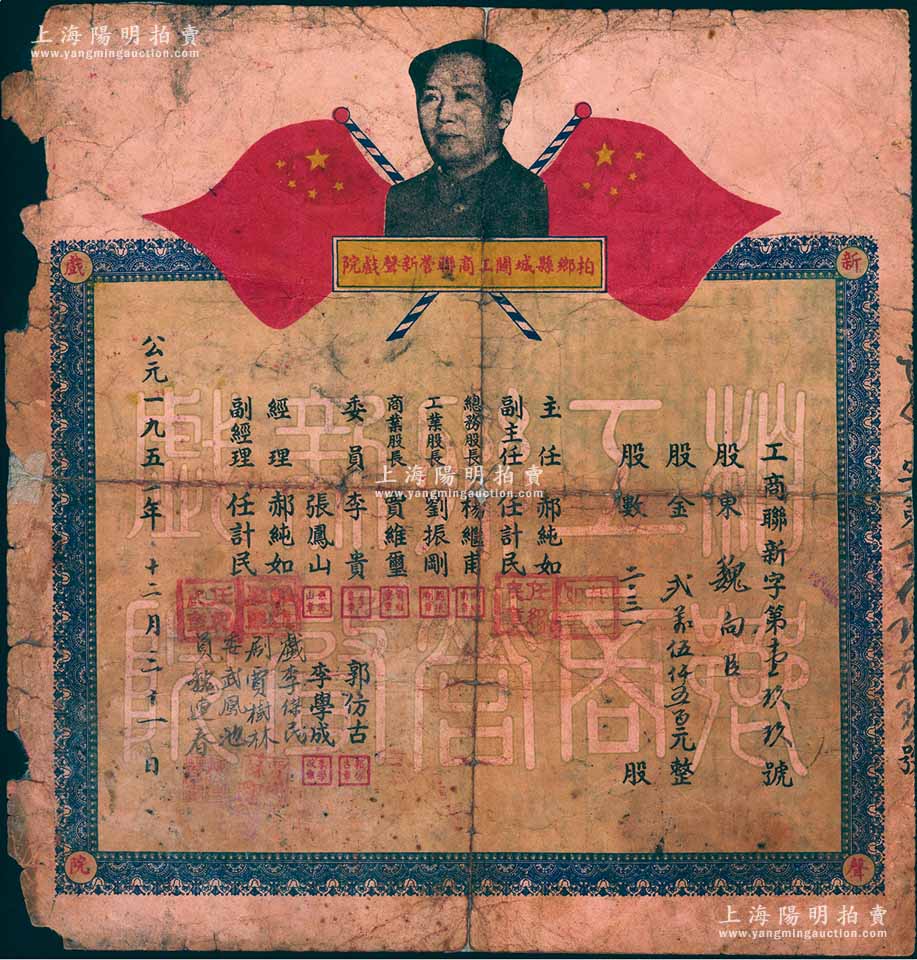 上海陽明拍賣
www.yangmingauction.com
柏鄉縣城關工商聯營新聲戲院
新
聲
戲
院
工商聯新字第壹玖玖號
股東 魏向臣
股金 弍萬伍仟五百元整
股數 二·三一 股
主任 郝純如
副主任 任計民
總務股長 楊繼甫
工業股長 劉振剛
商業股長 賈維璽
委員 李貴 郭仿古
張鳳山 李學成
經理 郝純如
副經理 任計民
戲 李偉民
劇 賈樹林
委 武鳳池
員 魏迎春
公元一九五一年十二月二十一日
上海陽明拍賣
www.yangmingauction.com
上海陽明拍賣
www.yangmingauction.com